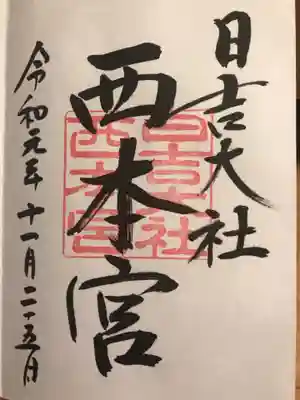 日吉大社
西本宮
日吉大社
西本宮
令和元年十一月二十五日